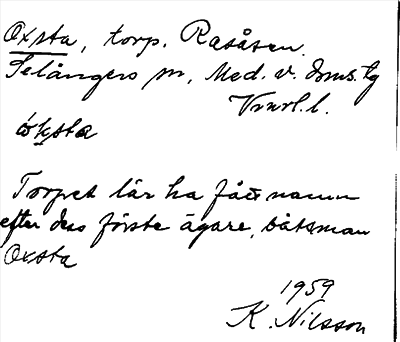 Oxsta, torp. Rasåsen.
Selångers sn, Med. v. dms. tg
Vnrl. l.
ωksta
Torpet lär ha fått namn
efter dess förste ägare, båtsman
Oxsta
1959
K. Nilsson